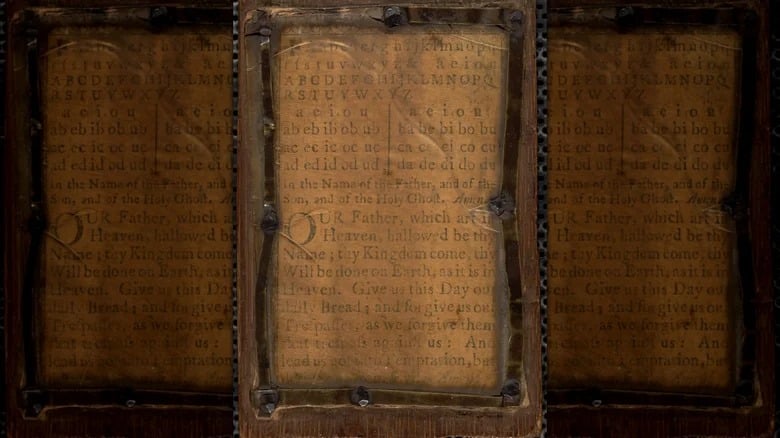 e f g h i j k l m n o p
s t u v w x y z & a e i o u
A B C D E F G H I J K L M N O P Q
R S T U V W X Y Z
a e i o u a e i o u
ab eb ib ob ub ba be bi bo bu
ac ec ic oc uc ca ce ci co cu
ad ed id od ud da de di do du
In the Name of the Father, and of the
Son, and of the Holy Ghoſt. Amen.
OUR Father, which art in
Heaven, hallowed be thy
Name; thy Kingdom come, thy
Will be done on Earth, as it is in
Heaven. Give us this Day our
daily Bread; and forgive us our
Treſpaſſes, as we forgive them
that treſpaſs againſt us: And
lead us not into Temptation, but